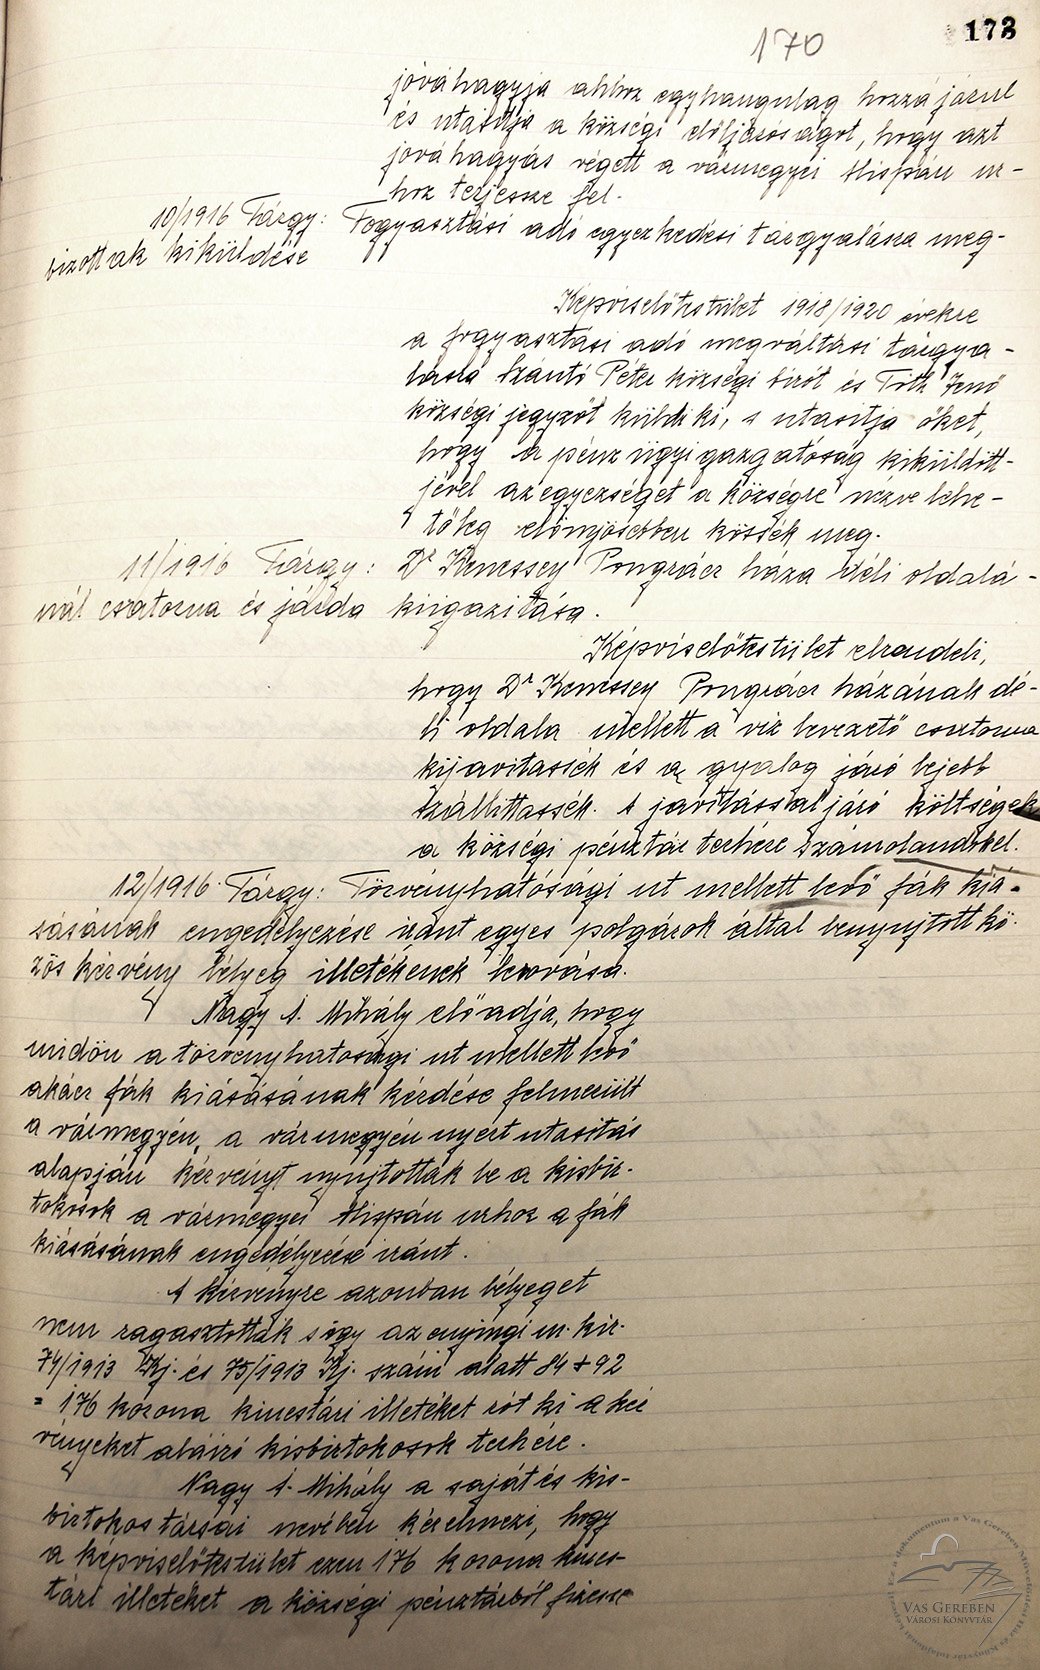 170
173
jóváhagyja ahhoz egyhangulag hozzá járul
és utasítja a községi elöljáróságot, hogy azt
jóváhagyás végett a vármegyei Alispán ur-
hoz terjessze fel.
10/1916 Tárgy: Fogyasztási adó egyezkedési tárgyalásra meg-
bizottak kiküldése
Képviselőtestület 1918/1920 évekre
a fogyasztási adó megváltási tárgya-
lásra Szántó Péter községi birót és Tóth Jenő
községi jegyzőt küldi ki, s utasitja őket,
hogy a pénzügyigazgatóság kiküldött-
jével az egyezséget a községre nézve lehe-
tőleg előnyösebben kössék meg.
11/1916 Tárgy: Dr Kenessey Pongrácz háza déli oldalá-
nál csatorna és járda kiigazitása.
Képviselőtestület elrendeli,
hogy Dr Kenessey Pongrácz házának dé-
li oldala mellett a viz levezető csatorna
kijavitassék és a gyalog járó lejebb
szállittassék. A javitással járó költségek
a községi pénztár terhére számolandók el.
12/1916 Tárgy: Törvényhatósági ut mellett levő fák kiá-
sásának engedélyezése iránt egyes polgárok által benyujtott kö-
zös kérvény bélyeg illetékének lerovása.
Nagy A. Mihály előadja, hogy
midőn a törvényhatosági ut mellett levő
akácz fák kiásásának kérdése felmerült
a vármegyén, a vármegyén nyert utasitás
alapján kérvényt nyujtottak be a kisbir-
tokosok a vármegyei Alispán urhoz a fák
kiásásának engedélyezése iránt.
A kérvényre azonban bélyeget
nem ragasztottak s igy az enyingi m. kir.
74/1913 Kj. és 75/1913 Kj. szám alatt 84 + 92
= 176 korona kincstári illetéket rótt ki a kér
vényeket aláiró kisbirtokosok terhére.
Nagy A. Mihály a saját és kis-
birtokos társai nevében kérelmezi, hogy
a képviselőtestület ezen 176 korona kincs-
tári illetéket a községi pénztárból fizesse
VAS GEREBEN
VÁROSI KÖNYVTÁR